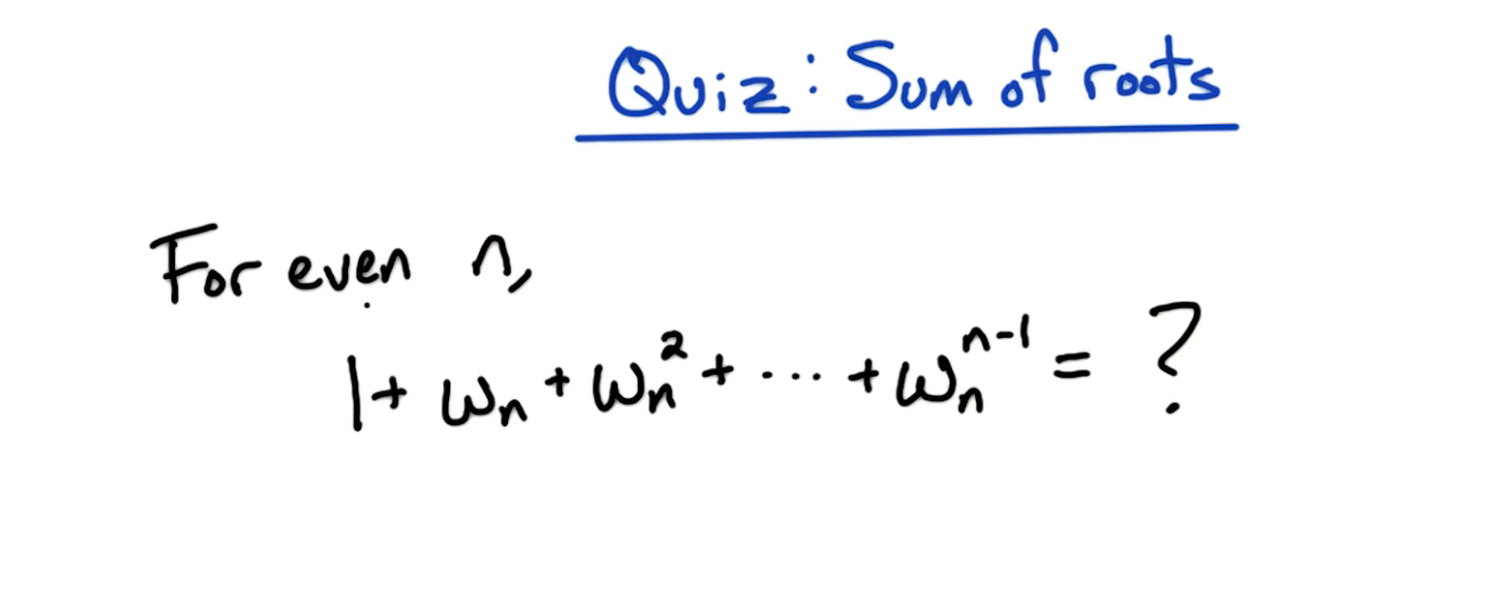 Quiz: Sum of roots
For even n,
1 + ωₙ + ωₙ² + ... + ωₙⁿ⁻¹ = ?